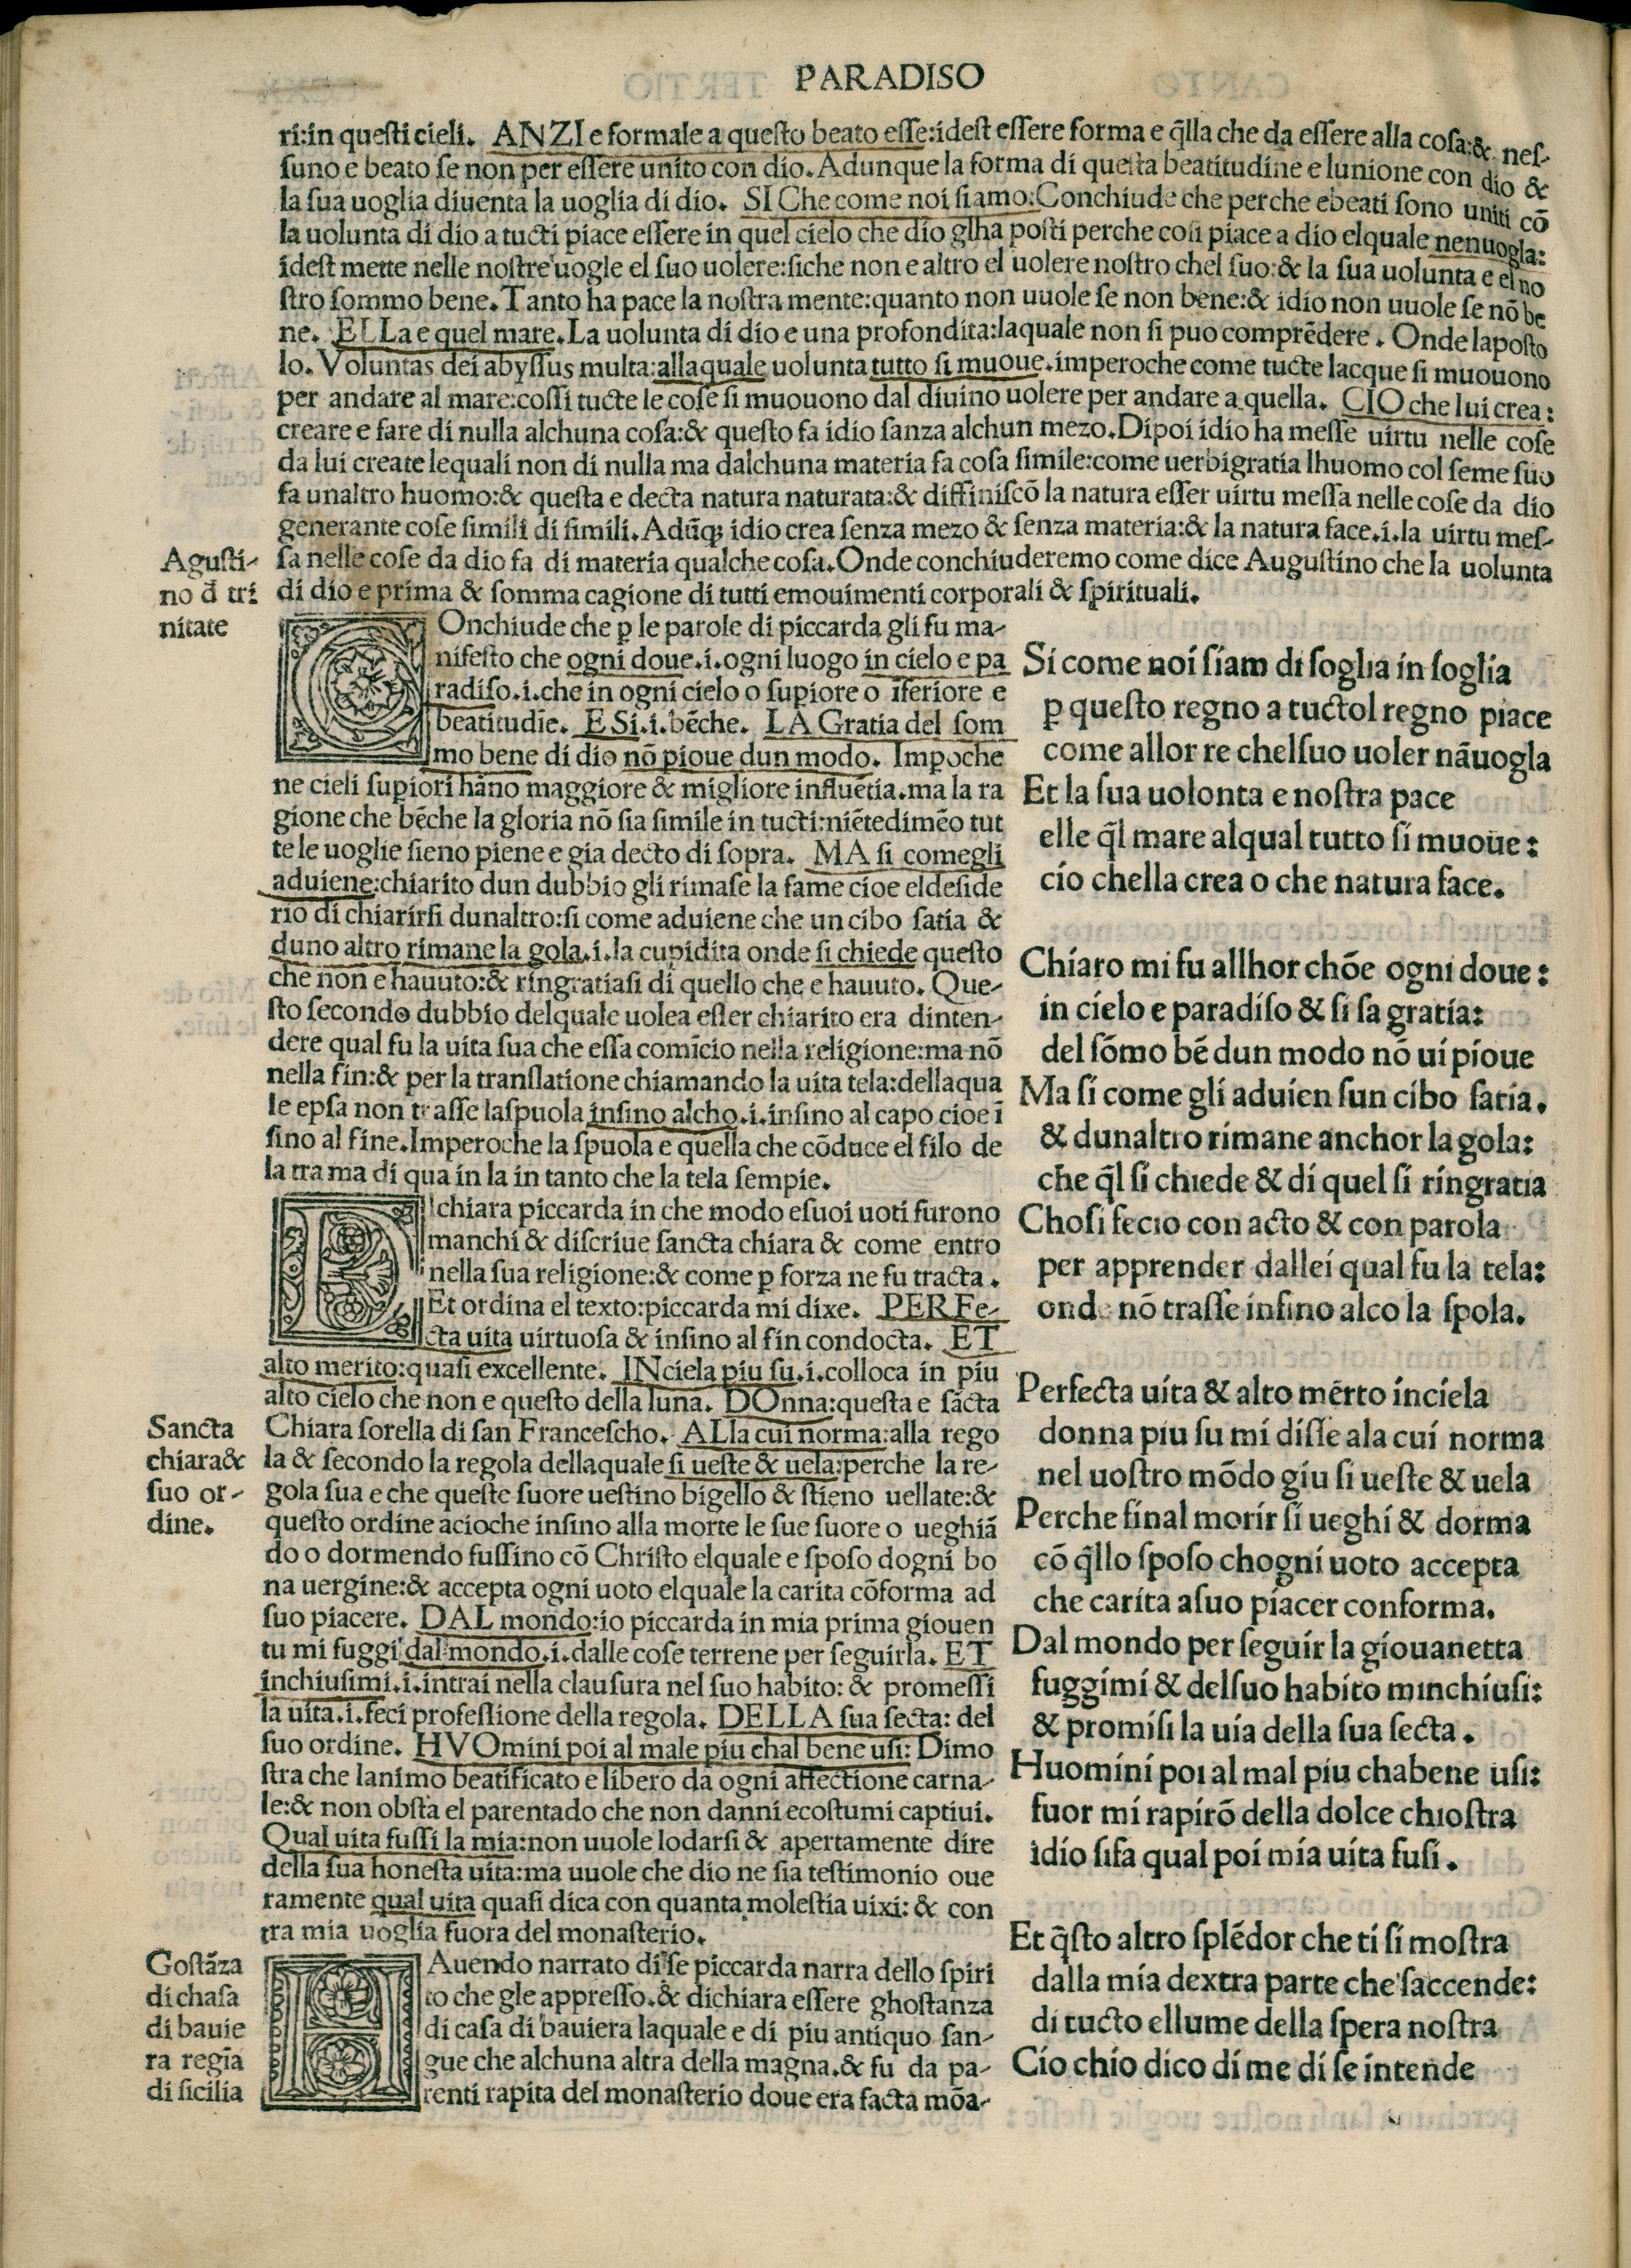 PARADISO
ri:in questi cieli. ANZI e formale a questo beato esse:idest essere forma e q̃lla che da essere alla cosa:& nes-
suno e beato se non per essere unito con dio. Adunque la forma di questa beatitudine e lunione con dio &
la sua uoglia diuenta la uoglia di dio. SI Che come noi siamo:Conchiude che perche ebeati sono uniti cõ
la uolunta di dio a tucti piace essere in quel cielo che dio glha posti perche cosi piace a dio elquale nenuogla:
idest mette nelle nostre uogle el suo uolere:siche non e altro el uolere nostro chel suo:& la sua uolunta e el no
stro sommo bene. Tanto ha pace la nostra mente:quanto non uuole se non bene:& idio non uuole se nõ be
ne. ELLa e quel mare. La uolunta di dio e una profondita:laquale non si puo comprẽdere. Onde laposto
lo. Voluntas dei abyssus multa:allaquale uolunta tutto si muoue.imperoche come tucte lacque si muouono
per andare al mare:cossi tucte le cose si muouono dal diuino uolere per andare a quella. CIO che lui crea:
creare e fare di nulla alchuna cosa:& questo fa idio sanza alchun mezo. Dipoi idio ha messe uirtu nelle cose
da lui create lequali non di nulla ma dalchuna materia fa cosa simile:come uerbigratia lhuomo col seme suo
fa unaltro huomo:& questa e decta natura naturata:& diffiniscõ la natura esser uirtu messa nelle cose da dio
generante cose simili di simili. Adũq; idio crea senza mezo & senza materia:& la natura face.i.la uirtu mes-
sa nelle cose da dio fa di materia qualche cosa. Onde conchiuderemo come dice Augustino che la uolunta
di dio e prima & somma cagione di tutti emouimenti corporali & spirituali.
Agusti-
no d̄ tri
nitate
COnchiude che ꝑ le parole di piccarda gli fu ma-
nifesto che ogni doue.i.ogni luogo in cielo e pa
radiso.i.che in ogni cielo o suꝑiore o ĩferiore e
beatitudĩe. E SI.i.bẽche. LA Gratia del som
mo bene di dio nõ pioue dun modo. Imꝑoche
ne cieli suꝑiori hãno maggiore & migliore influẽtia.ma la ra
gione che bẽche la gloria nõ sia simile in tucti:niẽtedimẽo tut
te le uoglie sieno piene e gia decto di sopra. MA si comegli
aduiene:chiarito dun dubbio gli rimase la fame cioe eldeside
rio di chiarirsi dunaltro:si come aduiene che un cibo satia &
duno altro rimane la gola.i.la cupidita onde si chiede questo
che non e hauuto:& ringratiasi di quello che e hauuto. Que-
sto secondo dubbio delquale uolea esser chiarito era dinten-
dere qual fu la uita sua che essa comĩcio nella religione:ma nõ
nella fin:& per la translatione chiamando la uita tela:dellaqua
le epsa non trasse laspuola insino alcho.i.insino al capo cioe ĩ
sino al fine. Imperoche la spuola e quella che cõduce el filo de
la trama di qua in la in tanto che la tela sempie.
DIchiara piccarda in che modo esuoi uoti furono
manchi & discriue sancta chiara & come entro
nella sua religione:& come ꝑ forza ne fu tracta.
Et ordina el texto:piccarda mi dixe. PERFe-
cta uita uirtuosa & insino al fin condocta. ET
alto merito:quasi excellente. INciela piu su.i.colloca in piu
alto cielo che non e questo della luna. DOnna:questa e sãcta
Chiara sorella di san Francescho. ALla cui norma:alla rego
la & secondo la regola dellaquale si ueste & uela:perche la re-
gola sua e che queste suore uestino bigello & stieno uellate:&
questo ordine acioche insino alla morte le sue suore o ueghiã
do o dormendo fussino cõ Christo elquale e sposo dogni bo
na uergine:& accepta ogni uoto elquale la carita cõforma ad
suo piacere. DAL mondo:io piccarda in mia prima giouen
tu mi fuggi dal mondo.i.dalle cose terrene per seguirla. ET
inchiusimi.i.intrai nella clausura nel suo habito: & promessi
la uita.i.feci professione della regola. DELLA sua secta: del
suo ordine. HVOmini poi al male piu chal bene usi: Dimo
stra che lanimo beatificato e libero da ogni affectione carna-
le:& non obsta el parentado che non danni ecostumi captiui.
Qual uita fussi la mia:non uuole lodarsi & apertamente dire
della sua honesta uita:ma uuole che dio ne sia testimonio oue
ramente qual uita quasi dica con quanta molestia uixi: & con
tra mia uoglia fuora del monasterio.
Sancta
chiara&
suo or-
dine.
HAuendo narrato di se piccarda narra dello spiri
to che gle appresso.& dichiara essere ghostanza
di casa di bauiera laquale e di piu antiquo san-
gue che alchuna altra della magna.& fu da pa-
renti rapita del monasterio doue era facta mõa-
Gostãza
di chasa
di bauie
ra regĩa
di sicilia
Si come noi siam di soglia in soglia
ꝑ questo regno a tuctol regno piace
come allor re chelsuo uoler nãuogla
Et la sua uolonta e nostra pace
elle q̃l mare alqual tutto si muoue:
cio chella crea o che natura face.
Chiaro mi fu allhor chõe ogni doue:
in cielo e paradiso & si sa gratia:
del sõmo bẽ dun modo nõ ui pioue
Ma si come gli aduien sun cibo satia.
& dunaltro rimane anchor la gola:
che q̃l si chiede & di quel si ringratia
Chosi fecio con acto & con parola
per apprender dallei qual fu la tela:
onde nõ trasse insino alco la spola.
Perfecta uita & alto mẽrto inciela
donna piu su mi disse ala cui norma
nel uostro mõdo giu si ueste & uela
Perche final morir si ueghi & dorma
cõ q̃llo sposo chogni uoto accepta
che carita asuo piacer conforma.
Dal mondo per seguir la giouanetta
fuggimi & delsuo habito minchiusi:
& promisi la uia della sua secta.
Huomini poi al mal piu chabene usi:
fuor mi rapirõ della dolce chiostra
idio sifa qual poi mia uita fusi.
Et q̃sto altro splẽdor che ti si mostra
dalla mia dextra parte che saccende:
di tucto ellume della spera nostra
Cio chio dico di me di se intende